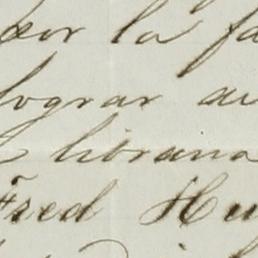 por la fa
lograr au
librana
Fred Hu